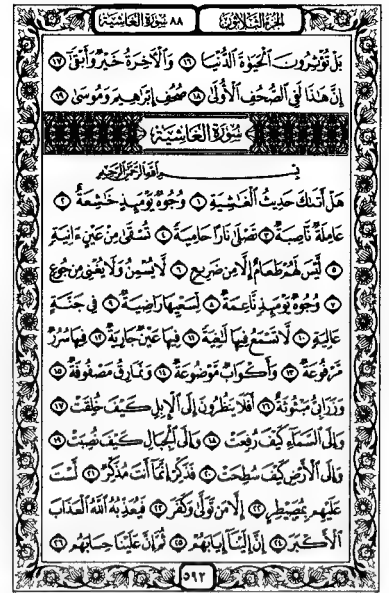 الجزء الثلاثون ٨٨ سورة الغاشية
بَلْ تُؤْثِرُونَ الْحَيَوٰةَ الدُّنْيَا ١٦ وَالْآخِرَةُ خَيْرٌ وَأَبْقَىٰ ١٧
إِنَّ هَٰذَا لَفِى الصُّحُفِ الْأُولَىٰ ١٨ صُحُفِ إِبْرَاهِيمَ وَمُوسَىٰ ١٩
سُورَةُ الغَاشِيَةِ
بِسْمِ اللَّهِ الرَّحْمَٰنِ الرَّحِيمِ
هَلْ أَتَىٰكَ حَدِيثُ الْغَٰشِيَةِ ١ وُجُوهٌ يَوْمَئِذٍ خَٰشِعَةٌ ٢
عَامِلَةٌ نَّاصِبَةٌ ٣ تَصْلَىٰ نَارًا حَامِيَةً ٤ تُسْقَىٰ مِنْ عَيْنٍ ءَانِيَةٍ
٥ لَّيْسَ لَهُمْ طَعَامٌ إِلَّا مِن ضَرِيعٍ ٦ لَّا يُسْمِنُ وَلَا يُغْنِى مِن جُوعٍ
٧ وُجُوهٌ يَوْمَئِذٍ نَّاعِمَةٌ ٨ لِّسَعْيِهَا رَاضِيَةٌ ٩ فِى جَنَّةٍ
عَالِيَةٍ ١٠ لَّا تَسْمَعُ فِيهَا لَٰغِيَةً ١١ فِيهَا عَيْنٌ جَارِيَةٌ ١٢ فِيهَا سُرُرٌ
مَّرْفُوعَةٌ ١٣ وَأَكْوَابٌ مَّوْضُوعَةٌ ١٤ وَنَمَارِقُ مَصْفُوفَةٌ ١٥
وَزَرَابِىُّ مَبْثُوثَةٌ ١٦ أَفَلَا يَنظُرُونَ إِلَى الْإِبِلِ كَيْفَ خُلِقَتْ ١٧
وَإِلَى السَّمَآءِ كَيْفَ رُفِعَتْ ١٨ وَإِلَى الْجِبَالِ كَيْفَ نُصِبَتْ ١٩
وَإِلَى الْأَرْضِ كَيْفَ سُطِحَتْ ٢٠ فَذَكِّرْ إِنَّمَآ أَنتَ مُذَكِّرٌ ٢١ لَّسْتَ
عَلَيْهِم بِمُصَيْطِرٍ ٢٢ إِلَّا مَن تَوَلَّىٰ وَكَفَرَ ٢٣ فَيُعَذِّبُهُ اللَّهُ الْعَذَابَ
الْأَكْبَرَ ٢٤ إِنَّ إِلَيْنَآ إِيَابَهُمْ ٢٥ ثُمَّ إِنَّ عَلَيْنَا حِسَابَهُم ٢٦
٥٩٢